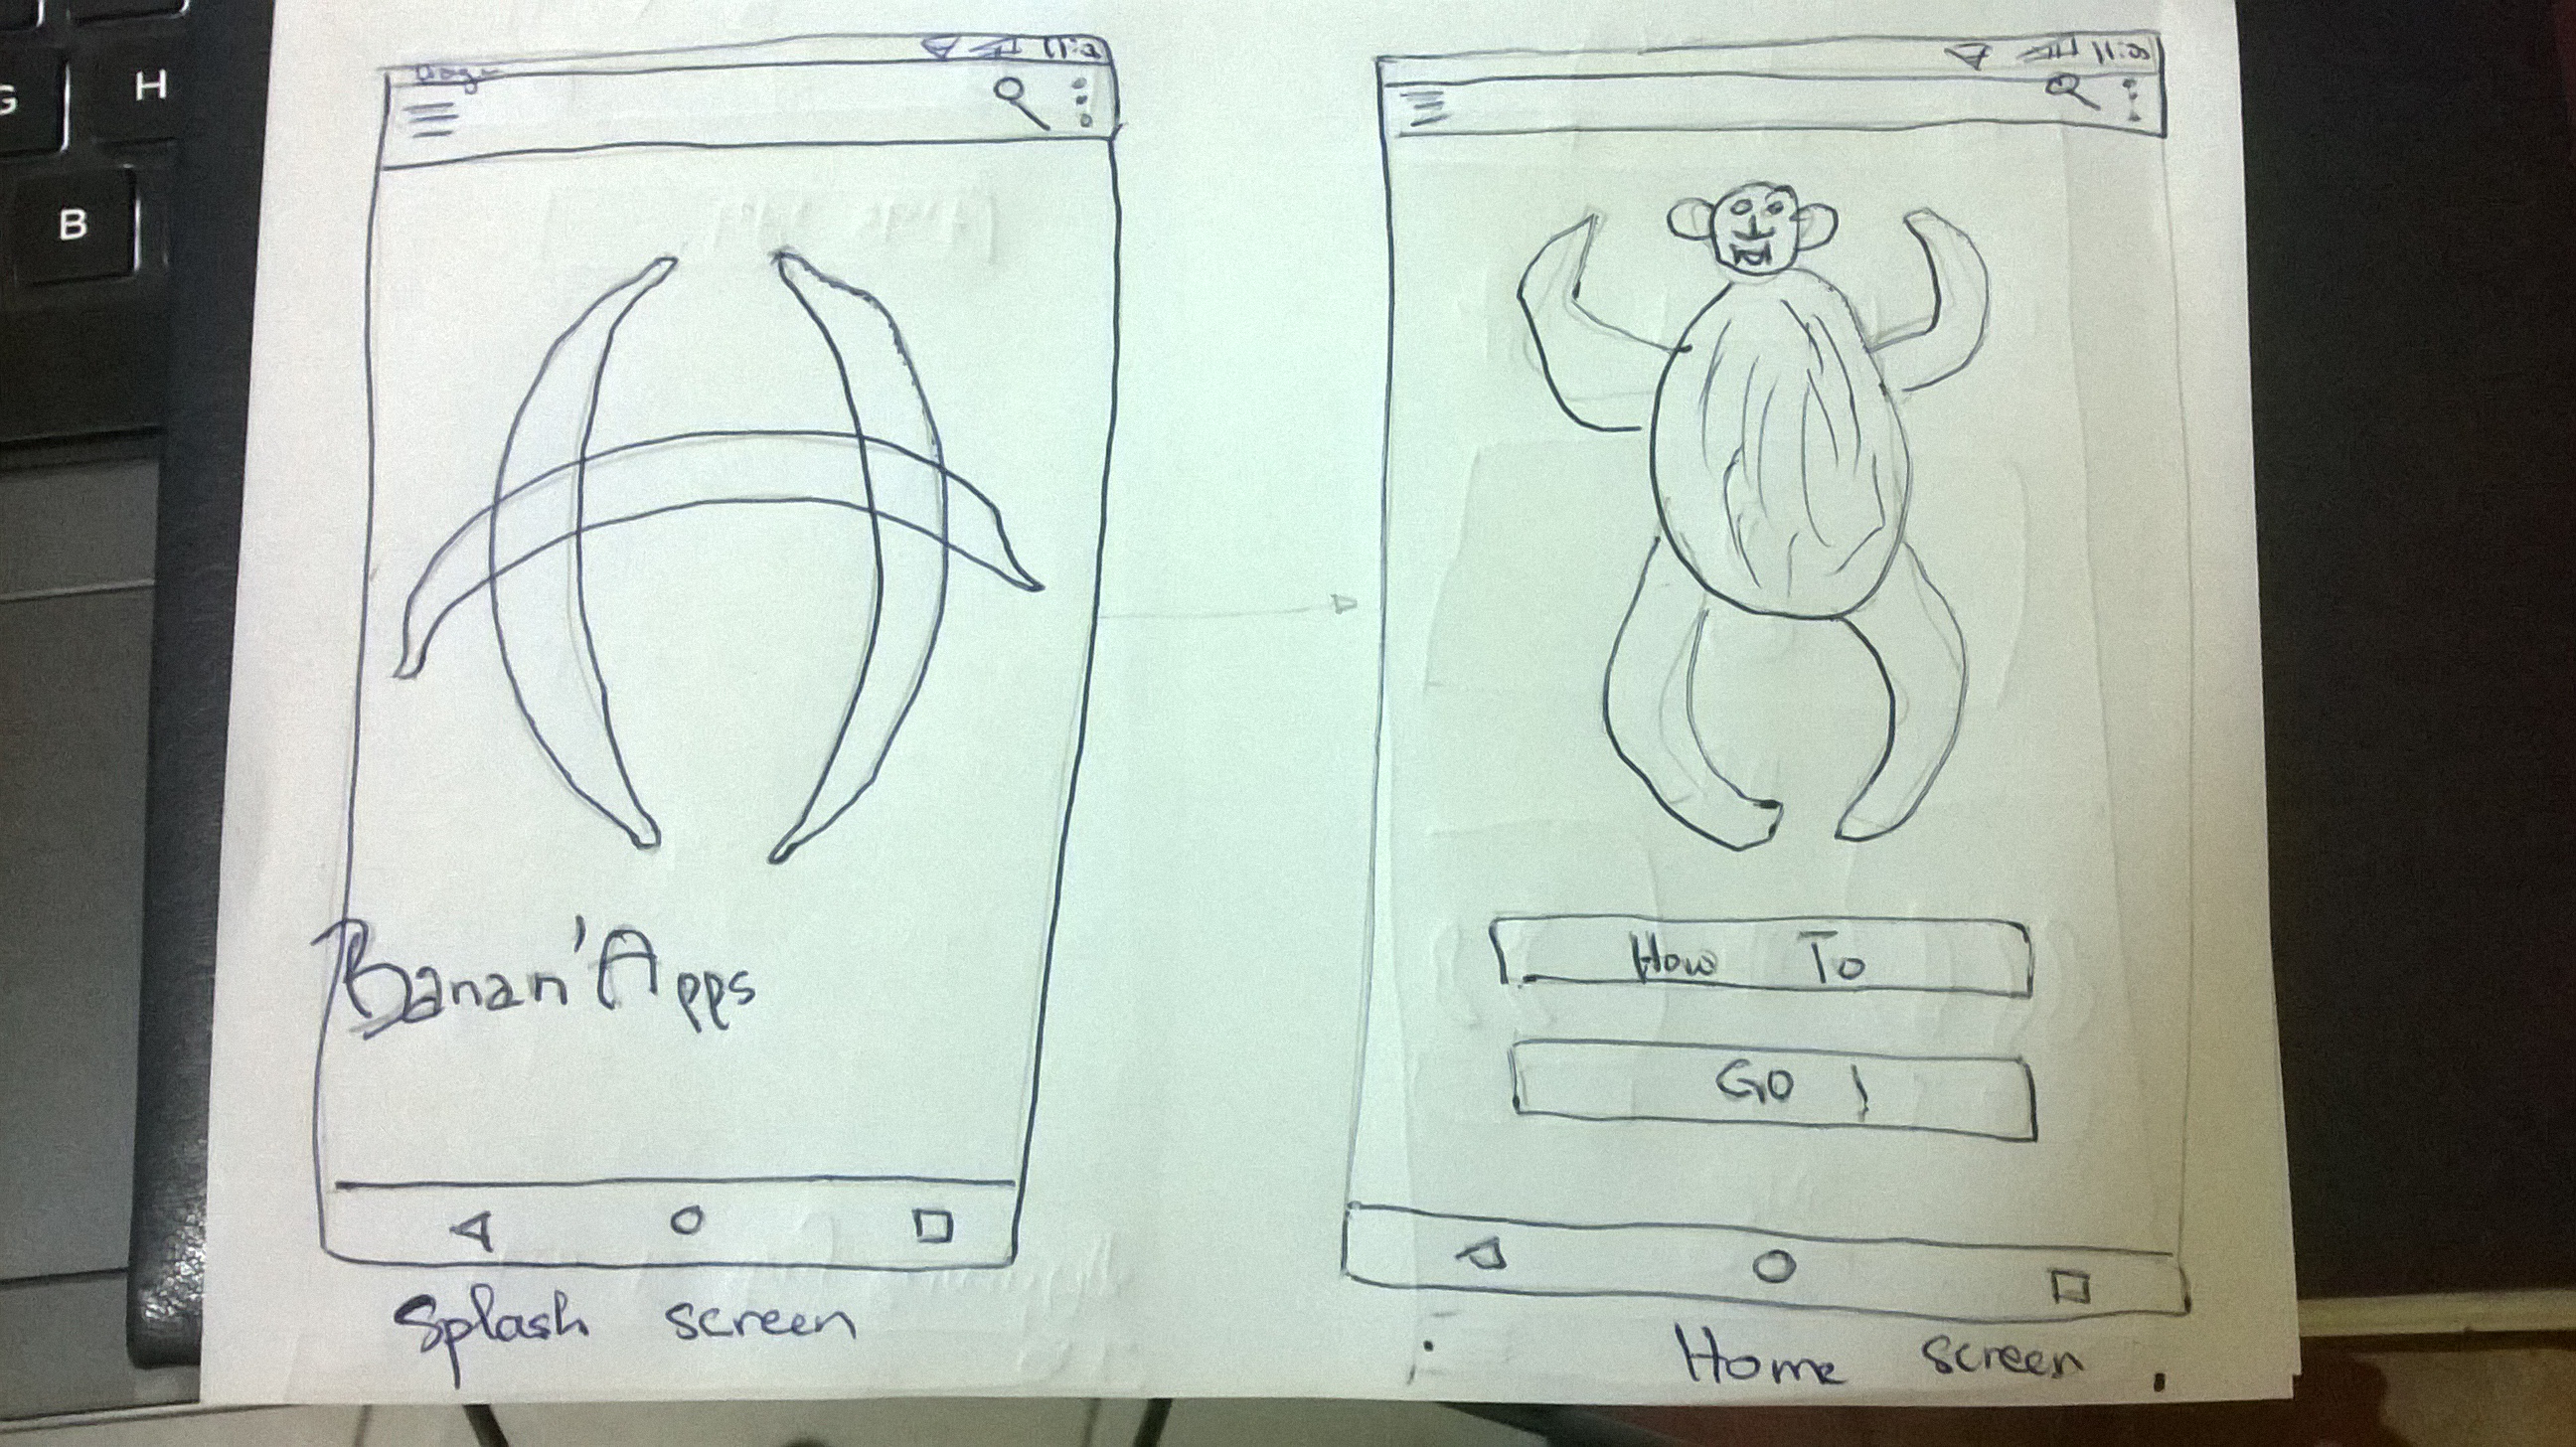 G
H
B
Banan'Apps
Splash screen
How To
Go !
Home screen